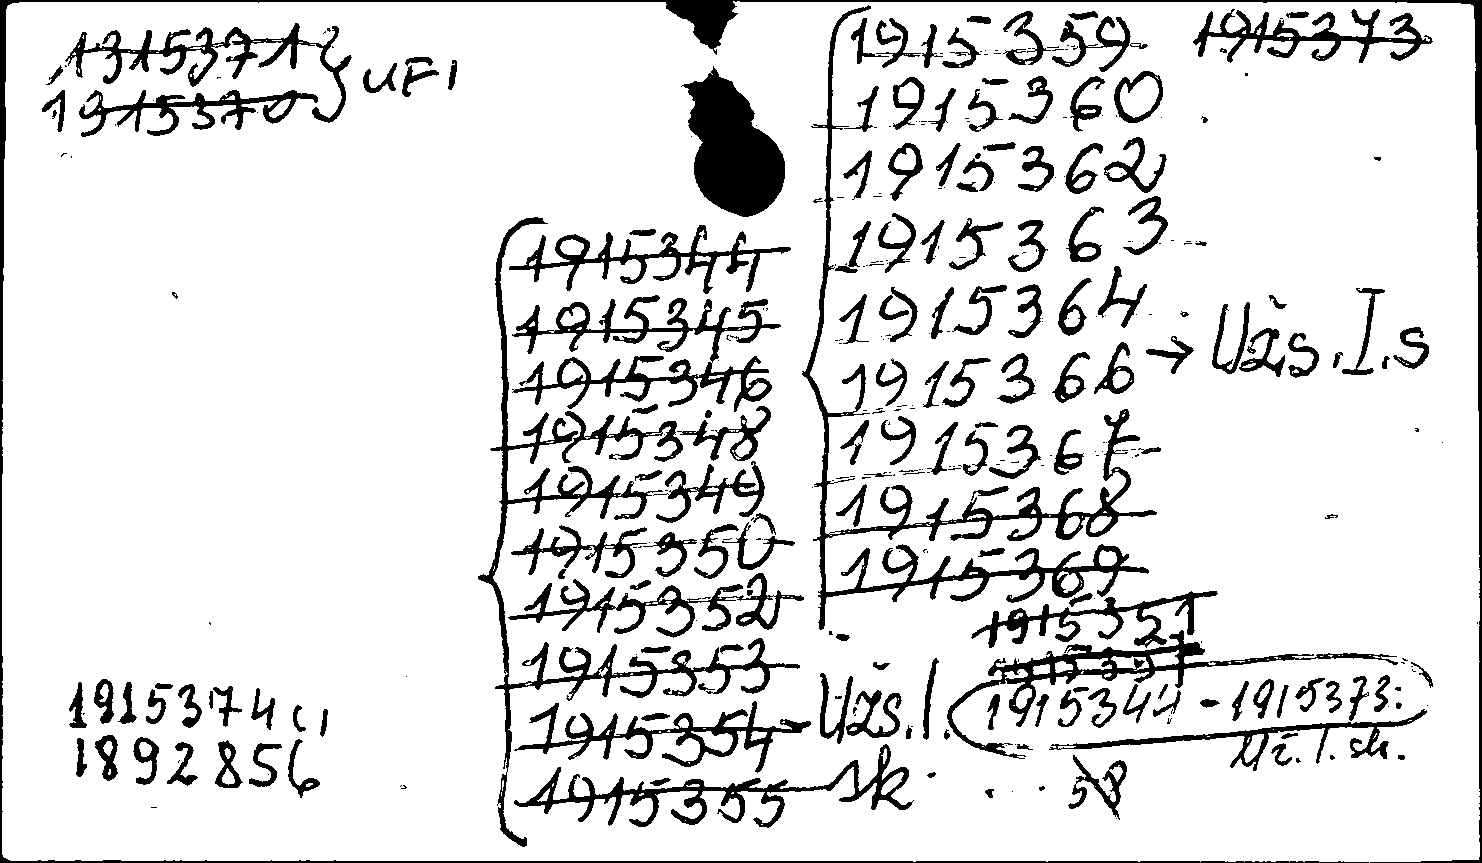 1915371
1915370 } UFI
1915344
1915345
1915346
1915348
1915349
1915350
1915352
1915353
1915354
1915355
Užs. l. sk.
1915359
1915360
1915362
1915363
1915364
1915366
1915367
1915368
1915369
→ Užs. I. s
1915373
1915351
1915344 - 1915373:
Už. l. sk.
58
1915374
1892856